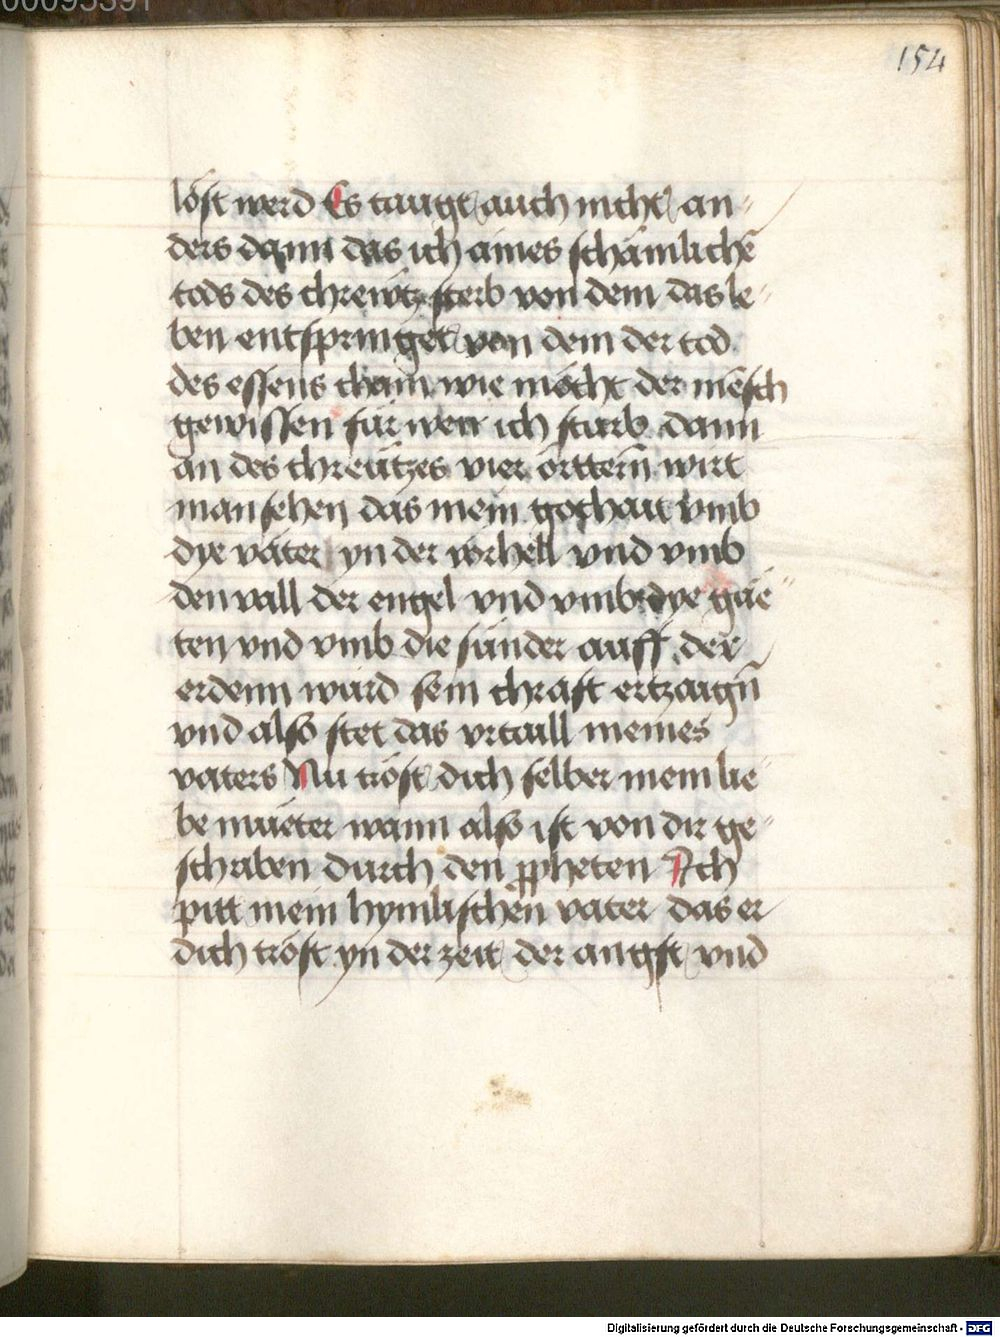 154
löst werd Es taugt auch nicht an-
ders dann das ich aines schämlichē
tods des chrewtz sterb von dem das le-
ben entspringet von dem der tod
des essens cham wie möcht der mēsch
gewissen für wen ich starb dann
an des chreützes vier örttern wirt
man sehen das mein gothait vmb
dye väter yn der vorhell vnd vmb
den vall der engel vnd vmb dye güe-
ten vnd vmb die sünder auff der
erdenn würd sein chraft ertzaigñ
vnd also stet das vrtaill meines
vaters Nu tröst dich selber mein lie-
be müeter wann also ist von dir ge-
schraben durch den ꝓpheten Ich
pitt mein hymlischen vater das er
dich tröst yn der zeit der angst vnd
Digitalisierung gefördert durch die Deutsche Forschungsgemeinschaft - DFG